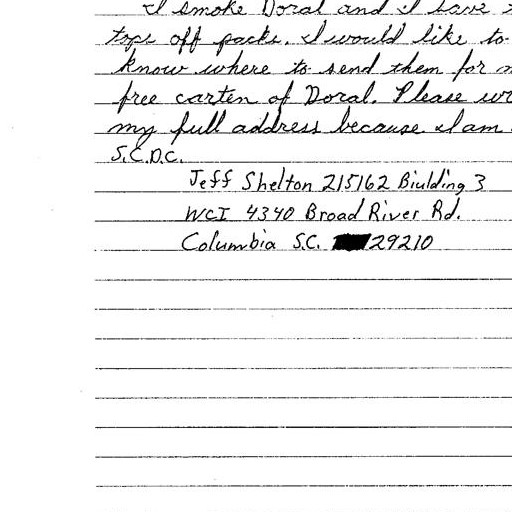 I smoke Doral and I save
tops off packs. I would like to
know where to send them for
free carten of Doral. Please
my full address because I am
S.C.D.C.
Jeff Shelton 215162 Biulding 3
WCI 4340 Broad River Rd.
Columbia S.C. 29210